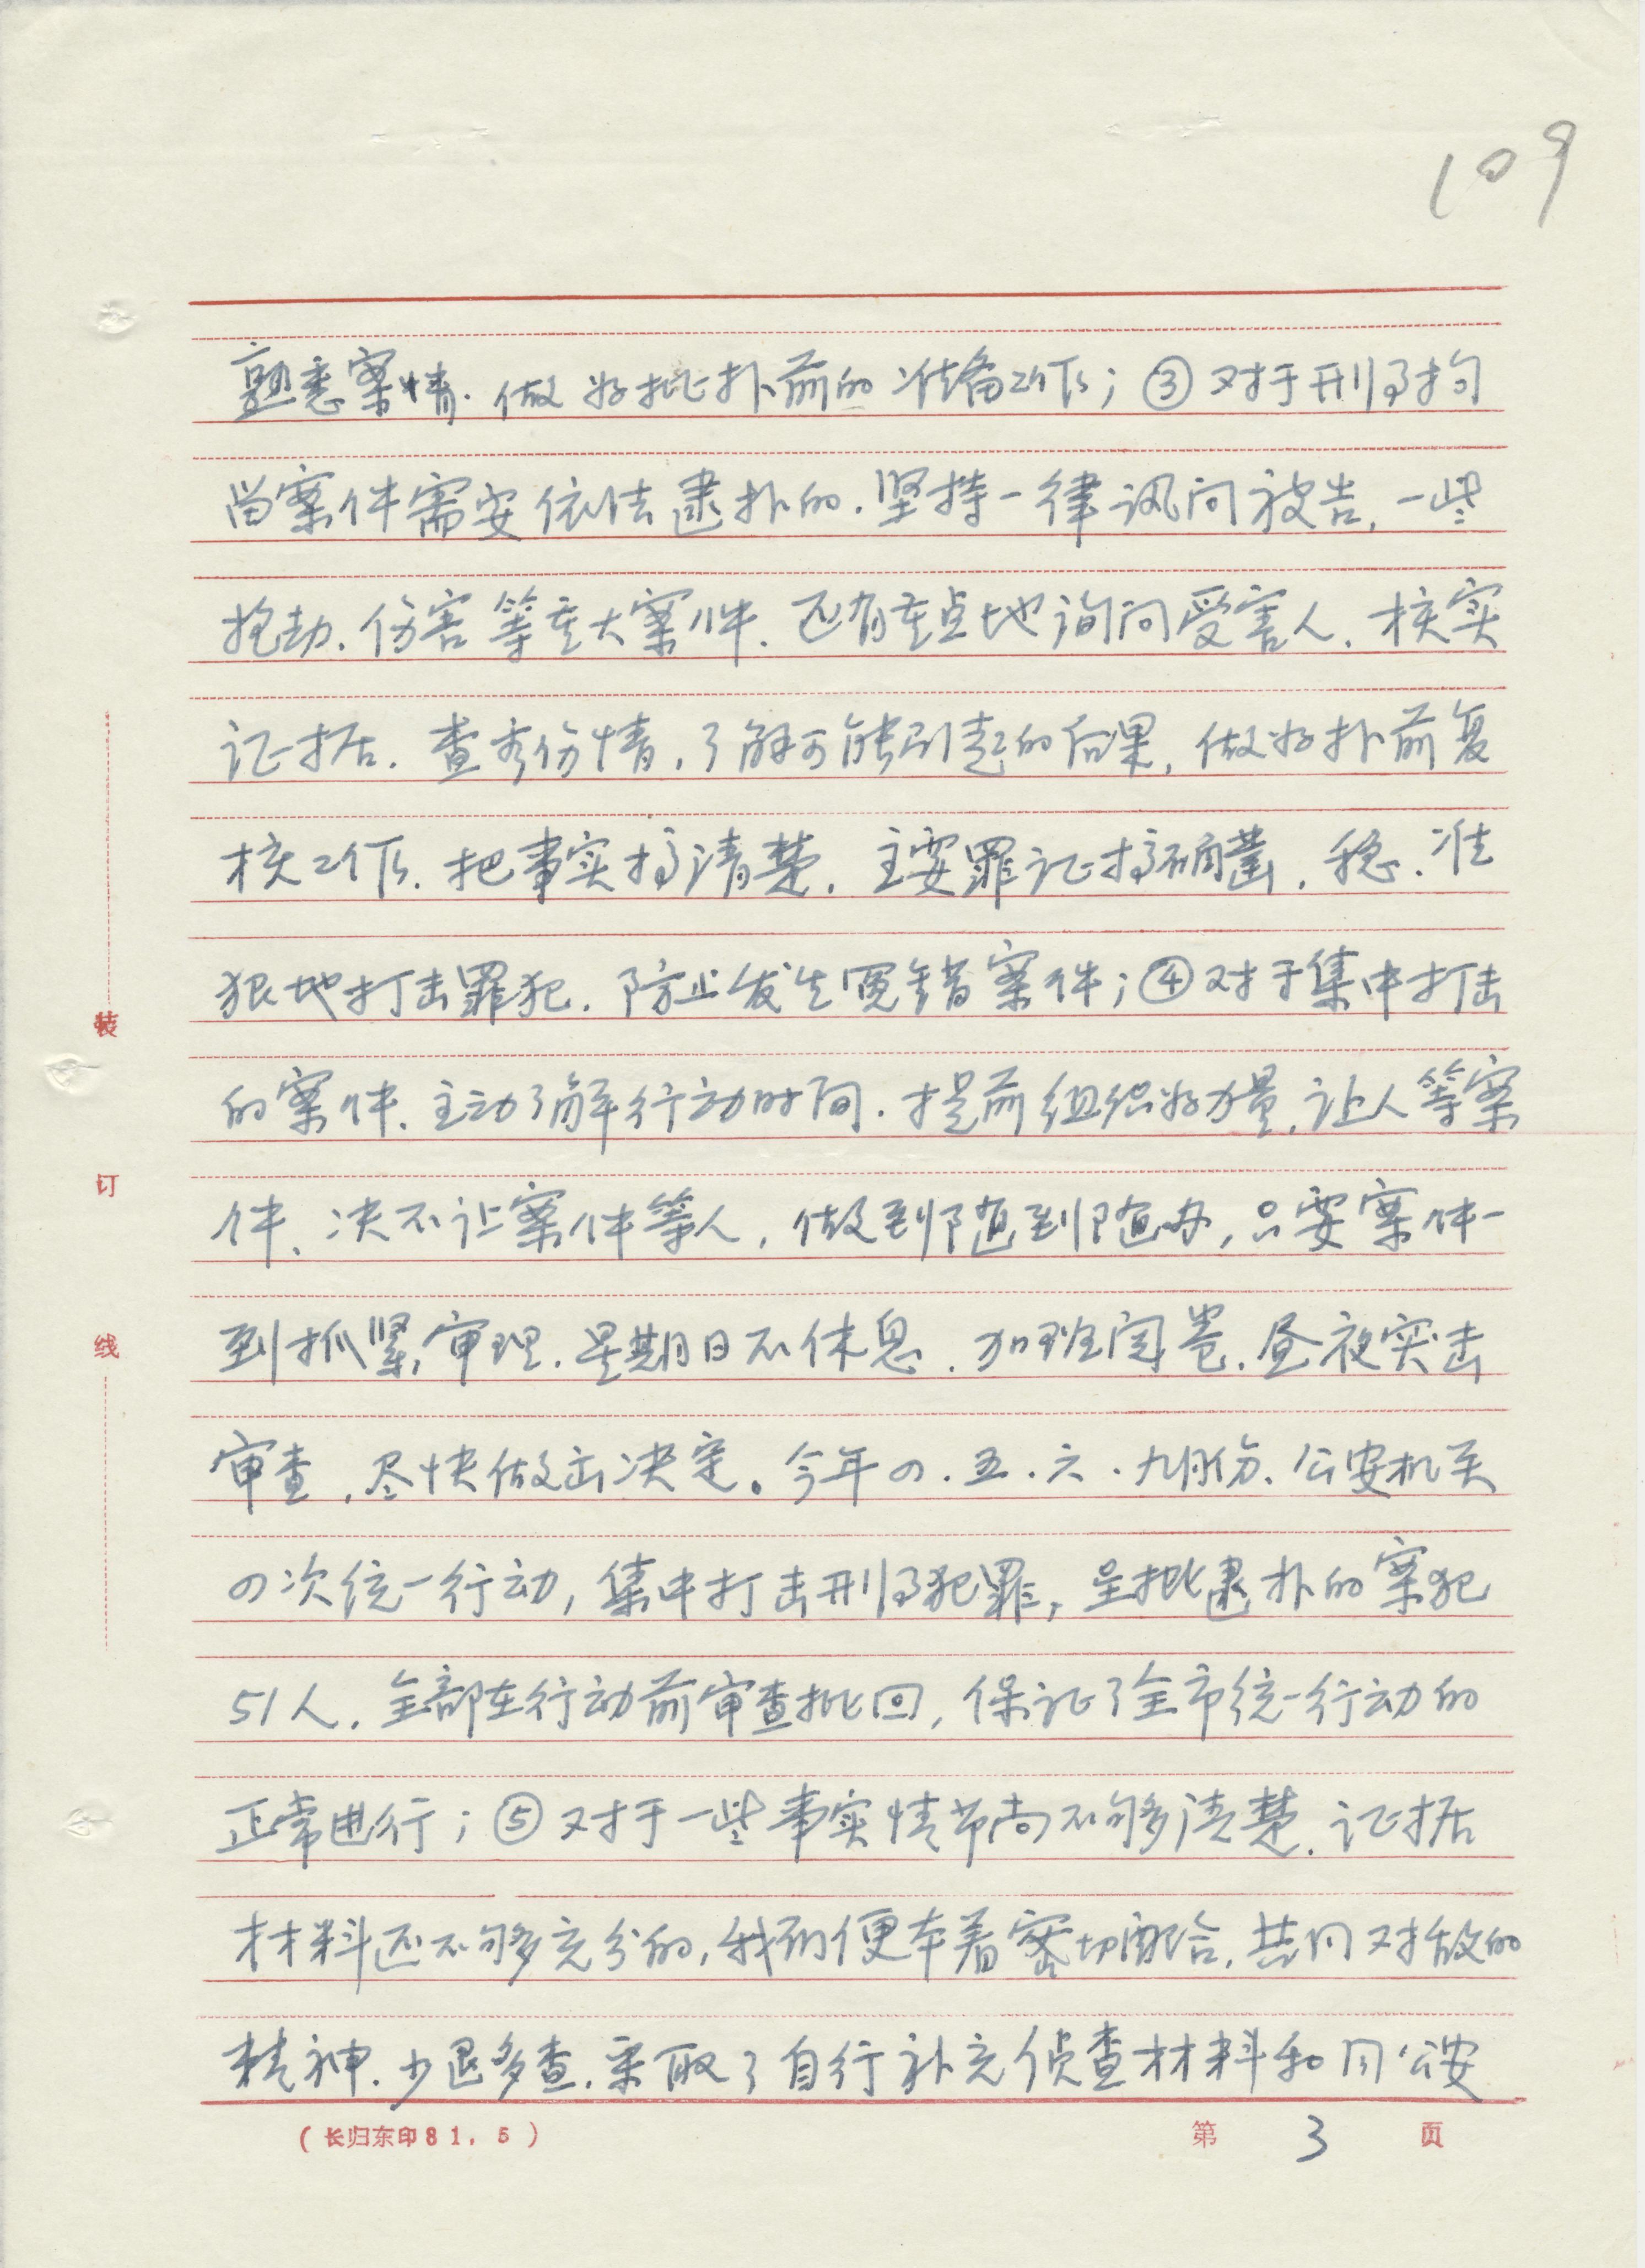 109
熟悉案情.做好批扑前的准备工作；③对于刑事拘
留案件需要依法逮扑的.坚持一律讯问被告,一些
抢劫、伤害等重大案件、还有重点地询问受害人、核实
证据.查看伤情,了解可能引起的后果,做好扑前复
核工作、把事实搞清楚,主要罪证搞确凿,稳、准
狠地打击罪犯.防止发生冤错案件；④对于集中打击
的案件、主动了解行动时间.提前组织好力量,让人等案
件、决不让案件等人,做到随到随办,只要案件一
到抓紧审理.星期日不休息.加班阅卷、昼夜突击
审查,尽快做出决定。今年四.五.六.九月份、公安机关
四次统一行动,集中打击刑事犯罪,呈批逮扑的案犯
51人.全部在行动前审查批回,保证了全市统一行动的
正常进行；⑤对于一些事实情节尚不够清楚、证据
材料还不够充分的,我们便本着密切配合.共同对敌的
精神.少退多查.采取了自行补充侦查材料和同公安
装
订
线
(长归东印81.5)
第 3 页